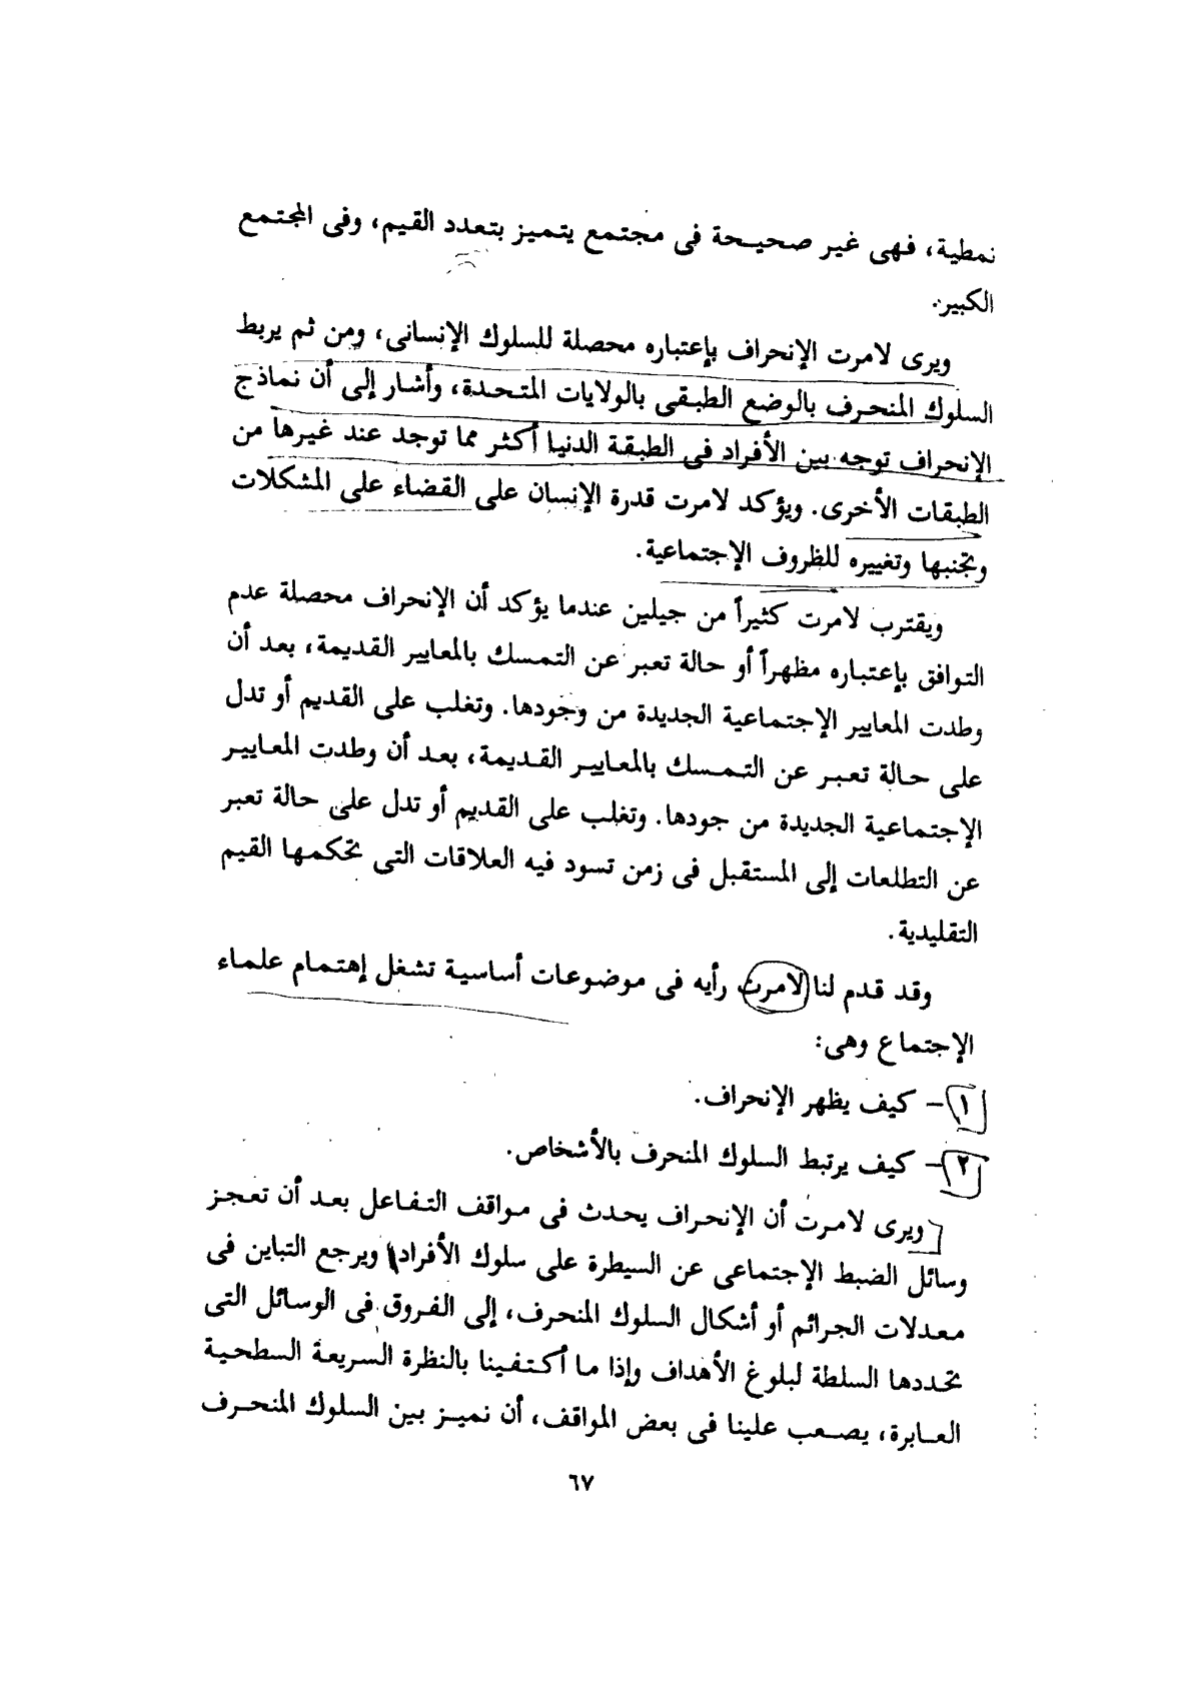 نمطية، فهى غير صحيحة فى مجتمع يتميز بتعدد القيم، وفى المجتمع
الكبير.
ويرى لامرت الإنحراف بإعتباره محصلة للسلوك الإنسانى، ومن ثم يربط
السلوك المنحرف بالوضع الطبقى بالولايات المتحدة، وأشار إلى أن نماذج
الإنحراف توجه بين الأفراد فى الطبقة الدنيا أكثر مما توجد عند غيرها من
الطبقات الأخرى. ويؤكد لامرت قدرة الإنسان على القضاء على المشكلات
وتجنبها وتغييره للظروف الإجتماعية.
ويقترب لامرت كثيراً من جيلين عندما يؤكد أن الإنحراف محصلة عدم
التوافق بإعتباره مظهراً أو حالة تعبر عن التمسك بالمعايير القديمة، بعد أن
وطدت المعايير الإجتماعية الجديدة من وجودها. وتغلب على القديم أو تدل
على حالة تعبر عن التمسك بالمعايير القديمة، بعد أن وطدت المعايير
الإجتماعية الجديدة من جودها. وتغلب على القديم أو تدل على حالة تعبر
عن التطلعات إلى المستقبل فى زمن تسود فيه العلاقات التى تحكمها القيم
التقليدية.
وقد قدم لنا لامرت رأيه فى موضوعات أساسية تشغل إهتمام علماء
الإجتماع وهى:
١- كيف يظهر الإنحراف.
٢- كيف يرتبط السلوك المنحرف بالأشخاص.
ويرى لامرت أن الإنحراف يحدث فى مواقف التفاعل بعد أن تعجز
وسائل الضبط الإجتماعى عن السيطرة على سلوك الأفراد ويرجع التباين فى
معدلات الجرائم أو أشكال السلوك المنحرف، إلى الفروق فى الوسائل التى
تحددها السلطة لبلوغ الأهداف وإذا ما أكتفينا بالنظرة السريعة السطحية
العابرة، يصعب علينا فى بعض المواقف، أن نميز بين السلوك المنحرف
٦٧